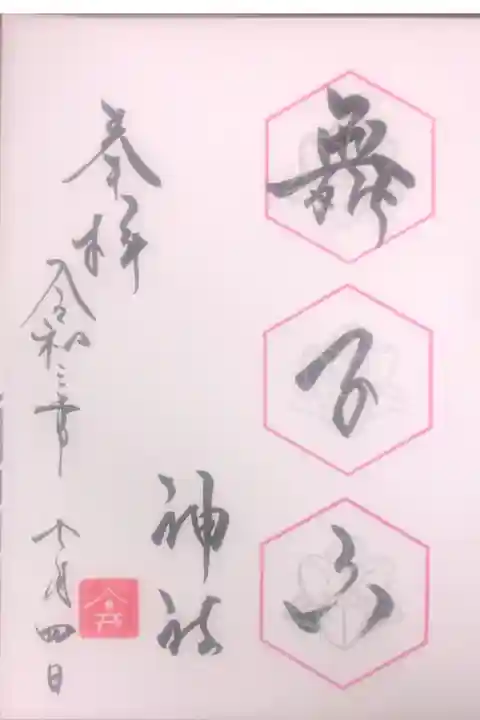 舞
万
神社
奉拝
令和三年 十月四日